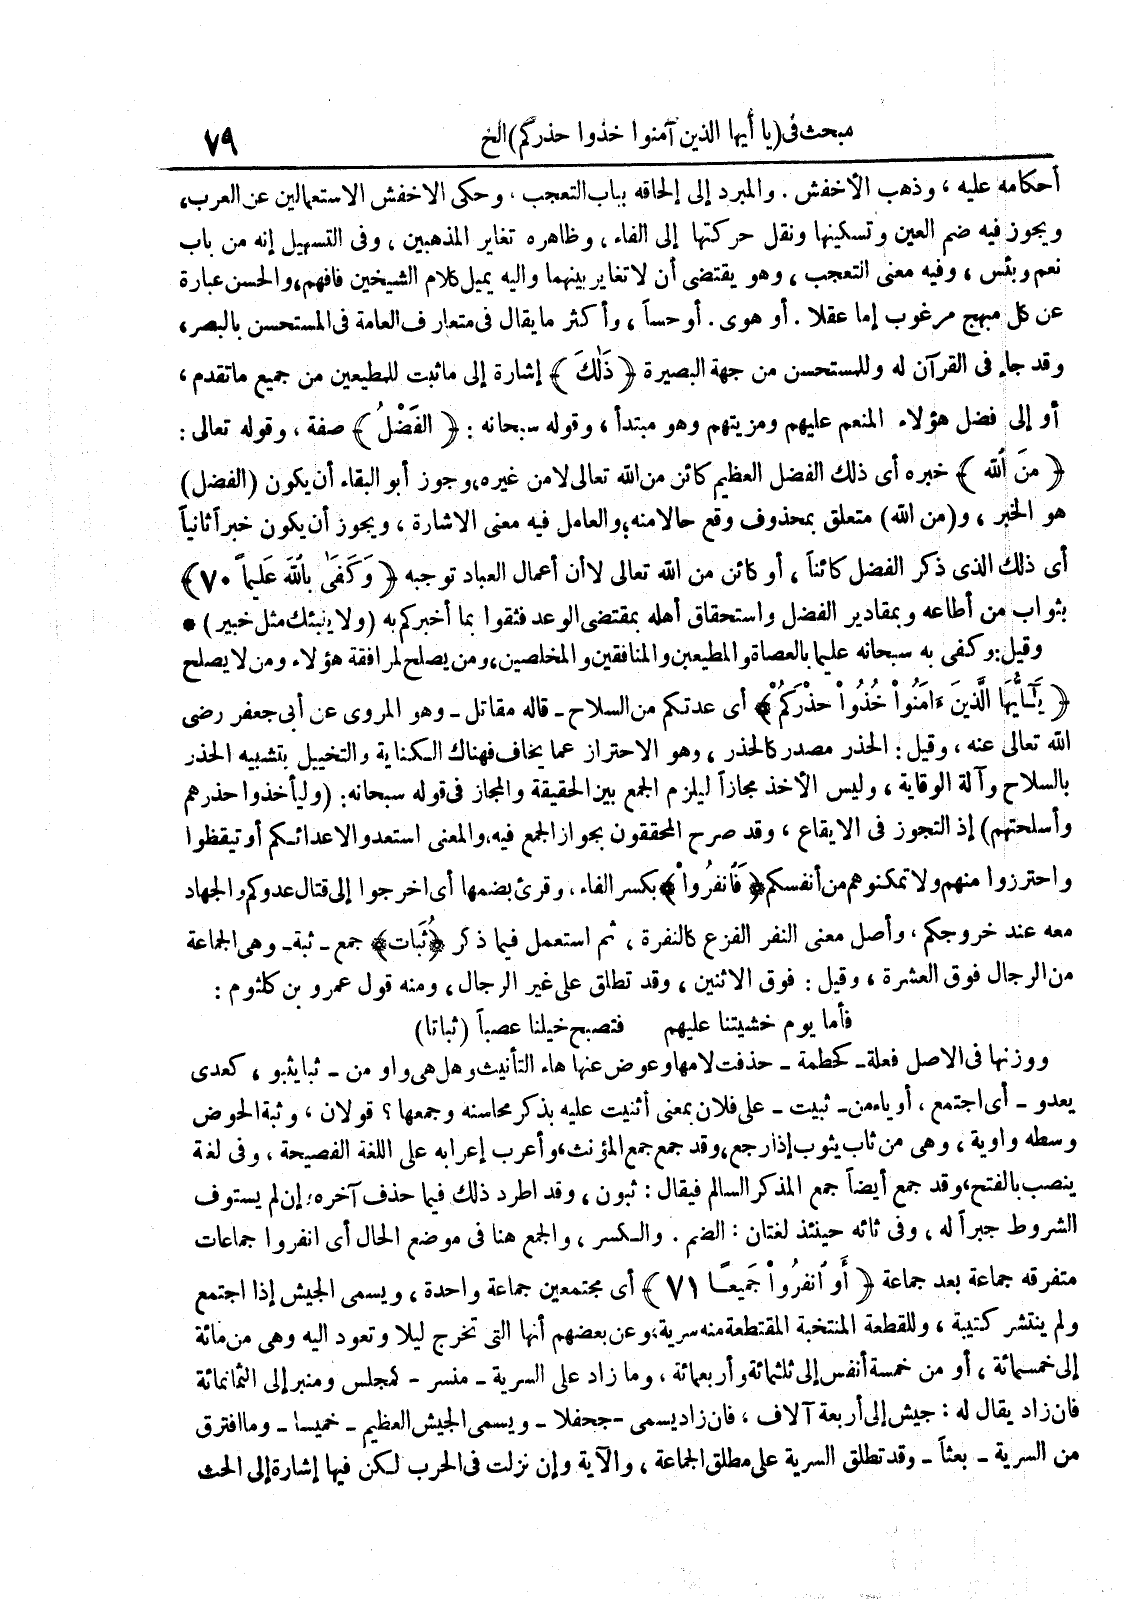 مبحث فى (يا أيها الذين آمنوا خذوا حذركم) الخ ٧٩
أحكامه عليه ، وذهب الأخفش . والمبرد إلى إلحاقه بباب التعجب ، وحكى الاخفش الاستعمالين عن العرب،
ويجوز فيه ضم العين وتسكينها ونقل حركتها إلى الفاء ، وظاهره تغاير المذهبين ، وفى التسهيل إنه من باب
نعم وبئس ، وفيه معنى التعجب ، وهو يقتضى أن لاتغاير بينهما واليه يميل كلام الشيخين فافهم، والحسن عبارة
عن كل مبهج مرغوب إما عقلا . أو هوى . أو حساً ، وأكثر ما يقال فى متعارف العامة فى المستحسن بالبصر،
وقد جاء فى القرآن له وللمستحسن من جهة البصيرة ﴿ ذَٰلكَ ﴾ إشارة إلى ماثبت للمطيعين من جميع ماتقدم ،
أو إلى فضل هؤلاء المنعم عليهم ومزيتهم وهو مبتدأ ، وقوله سبحانه : ﴿ الفَضْلُ ﴾ صفة ، وقوله تعالى :
﴿ منَ اللّٰه ﴾ خبره أى ذلك الفضل العظيم كائن من الله تعالى لامن غيره، وجوز أبو البقاء أن يكون (الفضل)
هو الخبر ، و(من الله) متعلق بمحذوف وقع حالا منه، والعامل فيه معنى الاشارة ، ويجوز أن يكون خبراً ثانياً
أى ذلك الذى ذكر الفضل كائناً ، أو كائن من الله تعالى لاأن أعمال العباد توجبه ﴿ وَكَفَىٰ باللّٰهَ عَليماً ٧٠ ﴾
بثواب من أطاعه وبمقادير الفضل واستحقاق أهله بمقتضى الوعد فثقوا بما أخبركم به (ولا ينبئك مثل خبير) *
وقيل: وكفى به سبحانه عليما بالعصاة والمطيعين والمنافقين والمخلصين، ومن يصلح لمرافقة هؤلاء ومن لا يصلح
﴿ يَـٰٓأَيُّهَا الَّذينَ ءَامَنُواْ خُذُواْ حذْرَكُمْ ﴾ أى عدتكم من السلاح ـ قاله مقاتل ـ وهو المروى عن أبى جعفر رضى
الله تعالى عنه ، وقيل : الحذر مصدر كالحذر ، وهو الاحتراز عما يخاف فهناك الكناية والتخييل بتشبيه الحذر
بالسلاح وآلة الوقاية ، وليس الأخذ مجازاً ليلزم الجمع بين الحقيقة والمجاز فى قوله سبحانه: (وليأخذوا حذرهم
وأسلحتهم) إذ التجوز فى الايقاع ، وقد صرح المحققون بجواز الجمع فيه، والمعنى استعدوا لاعدائكم أو تيقظوا
واحترزوا منهم ولا تمكنوهم من أنفسكم ﴿ فَانفرُواْ ﴾ بكسر الفاء ، وقرئ بضمها أى اخرجوا إلى قتال عدوكم والجهاد
معه عند خروجكم ، وأصل معنى النفر الفزع كالنفرة ، ثم استعمل فيما ذكر ﴿ ثُبَات ﴾ جمع ـ ثبة ـ وهى الجماعة
من الرجال فوق العشرة ، وقيل : فوق الاثنين ، وقد تطلق على غير الرجال ، ومنه قول عمرو بن كلثوم :
فأما يوم خشيتنا عليهم فتصبح خيلنا عصباً (ثباتا)
ووزنها فى الاصل فعلة ـ كحطمة ـ حذفت لامها وعوض عنها هاء التأنيث وهل هى واو من ـ ثبا يثبو ، كعدى
يعدو ـ أى اجتمع ، أو ياء من ـ ثبيت ـ على فلان بمعنى أثنيت عليه بذكر محاسنه وجمعها ؟ قولان ، وثبة الحوض
وسطه واوية ، وهى من ثاب يثوب إذا رجع، وقد جمع جمع المؤنث، وأعرب إعرابه على اللغة الفصيحة ، وفى لغة
ينصب بالفتح، وقد جمع أيضاً جمع المذكر السالم فيقال : ثبون ، وقد اطرد ذلك فيما حذف آخره؛ إن لم يستوف
الشروط جبراً له ، وفى ثائه حينئذ لغتان : الضم . والكسر ، والجمع هنا فى موضع الحال أى انفروا جماعات
متفرقه جماعة بعد جماعة ﴿ أَو انفرُواْ جَميعًا ٧١ ﴾ أى مجتمعين جماعة واحدة ، ويسمى الجيش إذا اجتمع
ولم ينتشر كتيبة ، وللقطعة المنتخبة المقتطعة منه سرية، وعن بعضهم أنها التى تخرج ليلا وتعود اليه وهى من مائة
إلى خمسمائة ، أو من خمسة أنفس إلى ثلثمائة وأربعمائة ، وما زاد على السرية ـ منسر ـ كمجلس ومنبر إلى الثمانمائة
فان زاد يقال له : جيش إلى أربعة آلاف ، فان زاد يسمى ـ جحفلا ـ ويسمى الجيش العظيم ـ خميسا ـ وما افترق
من السرية ـ بعثاً ـ وقد تطلق السرية على مطلق الجماعة ، والآية وإن نزلت فى الحرب لكن فيها إشارة إلى الحث